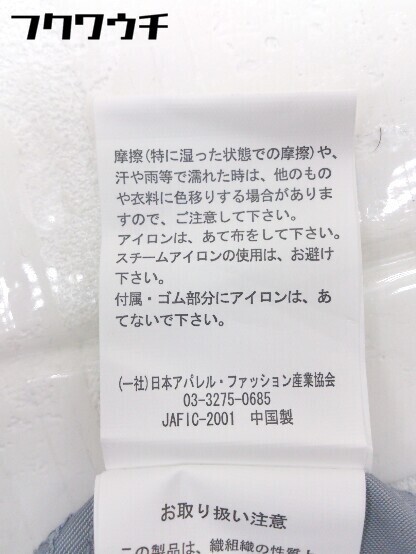 フクワウチ
摩擦(特に湿った状態での摩擦)や、
汗や雨等で濡れた時は、他のもの
や衣料に色移りする場合がありま
すので、ご注意して下さい。
アイロンは、あて布をして下さい。
スチームアイロンの使用は、お避け
下さい。
付属・ゴム部分にアイロンは、あ
てないで下さい。
(一社)日本アパレル・ファッション産業協会
03-3275-0685
JAFIC-2001 中国製
お取り扱い注意
この製品は、織組織の性質上